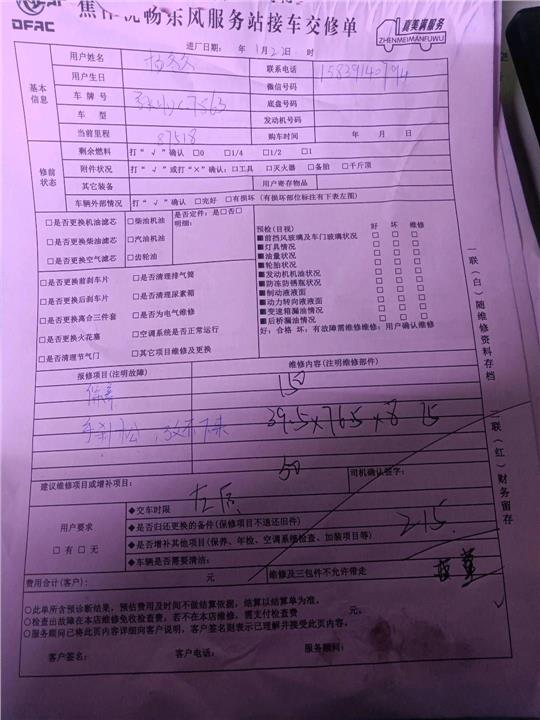 DFAC
畅东风服务站接车交修单
真美满服务
ZHENMEIMANFUWU
进厂日期: 年 1月2日 时
基本信息
用户姓名 联系电话
用户生日 微信号码
车牌号 底盘号码
车型 发动机号码
当前里程 87518 购车时间 年 月 日
修前状态
剩余燃料 打“√”确认 □0 □1/4 □1/2 □1
附件状况 打“√”或打“×”确认:□工具 □灭火器 □备胎 □千斤顶
其它装备 用户寄存物品
车辆外部情况 打“√”确认 □完好 □有损坏(有损坏部位标注有下表左图)
□是否更换机油滤芯 □柴油机油 是否定件:是□否□
明细:
□是否更换柴油滤芯 □汽油机油
□是否更换空气滤芯 □齿轮油
□是否更换前刹车片 □是否清理排气筒
□是否更换后刹车片 □是否清理尿素箱
□是否更换离合三件套 □是否为电气维修
□是否更换火花塞 □空调系统是否正常运行
□是否清理节气门 □其它项目维修及更换
预检(目视) 好 坏 维修
■前挡风玻璃及车门玻璃状况 □ □ □
■灯具情况 □ □ □
■油量状况 □ □ □
■轮胎状况 □ □ □
■发动机机油状况 □ □ □
■防冻防锈瓶状况 □ □ □
■制动液液面 □ □ □
■动力转向液液面 □ □ □
■变速箱漏油情况 □ □ □
■后桥漏油情况 □ □ □
好:合格 坏:有故障需维修维修:用户确认维修
报修项目(注明故障) 维修内容(注明维修部件)
保养 150
手刹松, 39.5×76.5×8 15
50
建议维修项目或增补项目: 司机确认签字:
左后
用户要求
□有 □无
◆交车时限
◆是否归还更换的备件(保修项目不退还旧件) 215.
◆是否增补其他项目(保养、年检、空调系统检查、加装项目等)
◆车辆是否需要清洁:
费用合计(客户): 元 维修及三包件不允许带走
○此单所含预诊断结果,预估费用及时间不做结算依据,结算以结算单为准。
○检查出故障在本店维修免收检查费,若不在本店维修,需支付检查费 元。
○服务顾问已将此页内容详细向客户说明,客户签名则表示已理解并接受此页内容。
客户签名: 客户电话: 服务顾问:
一联(白)随维修资料存档
二联(红)财务留存